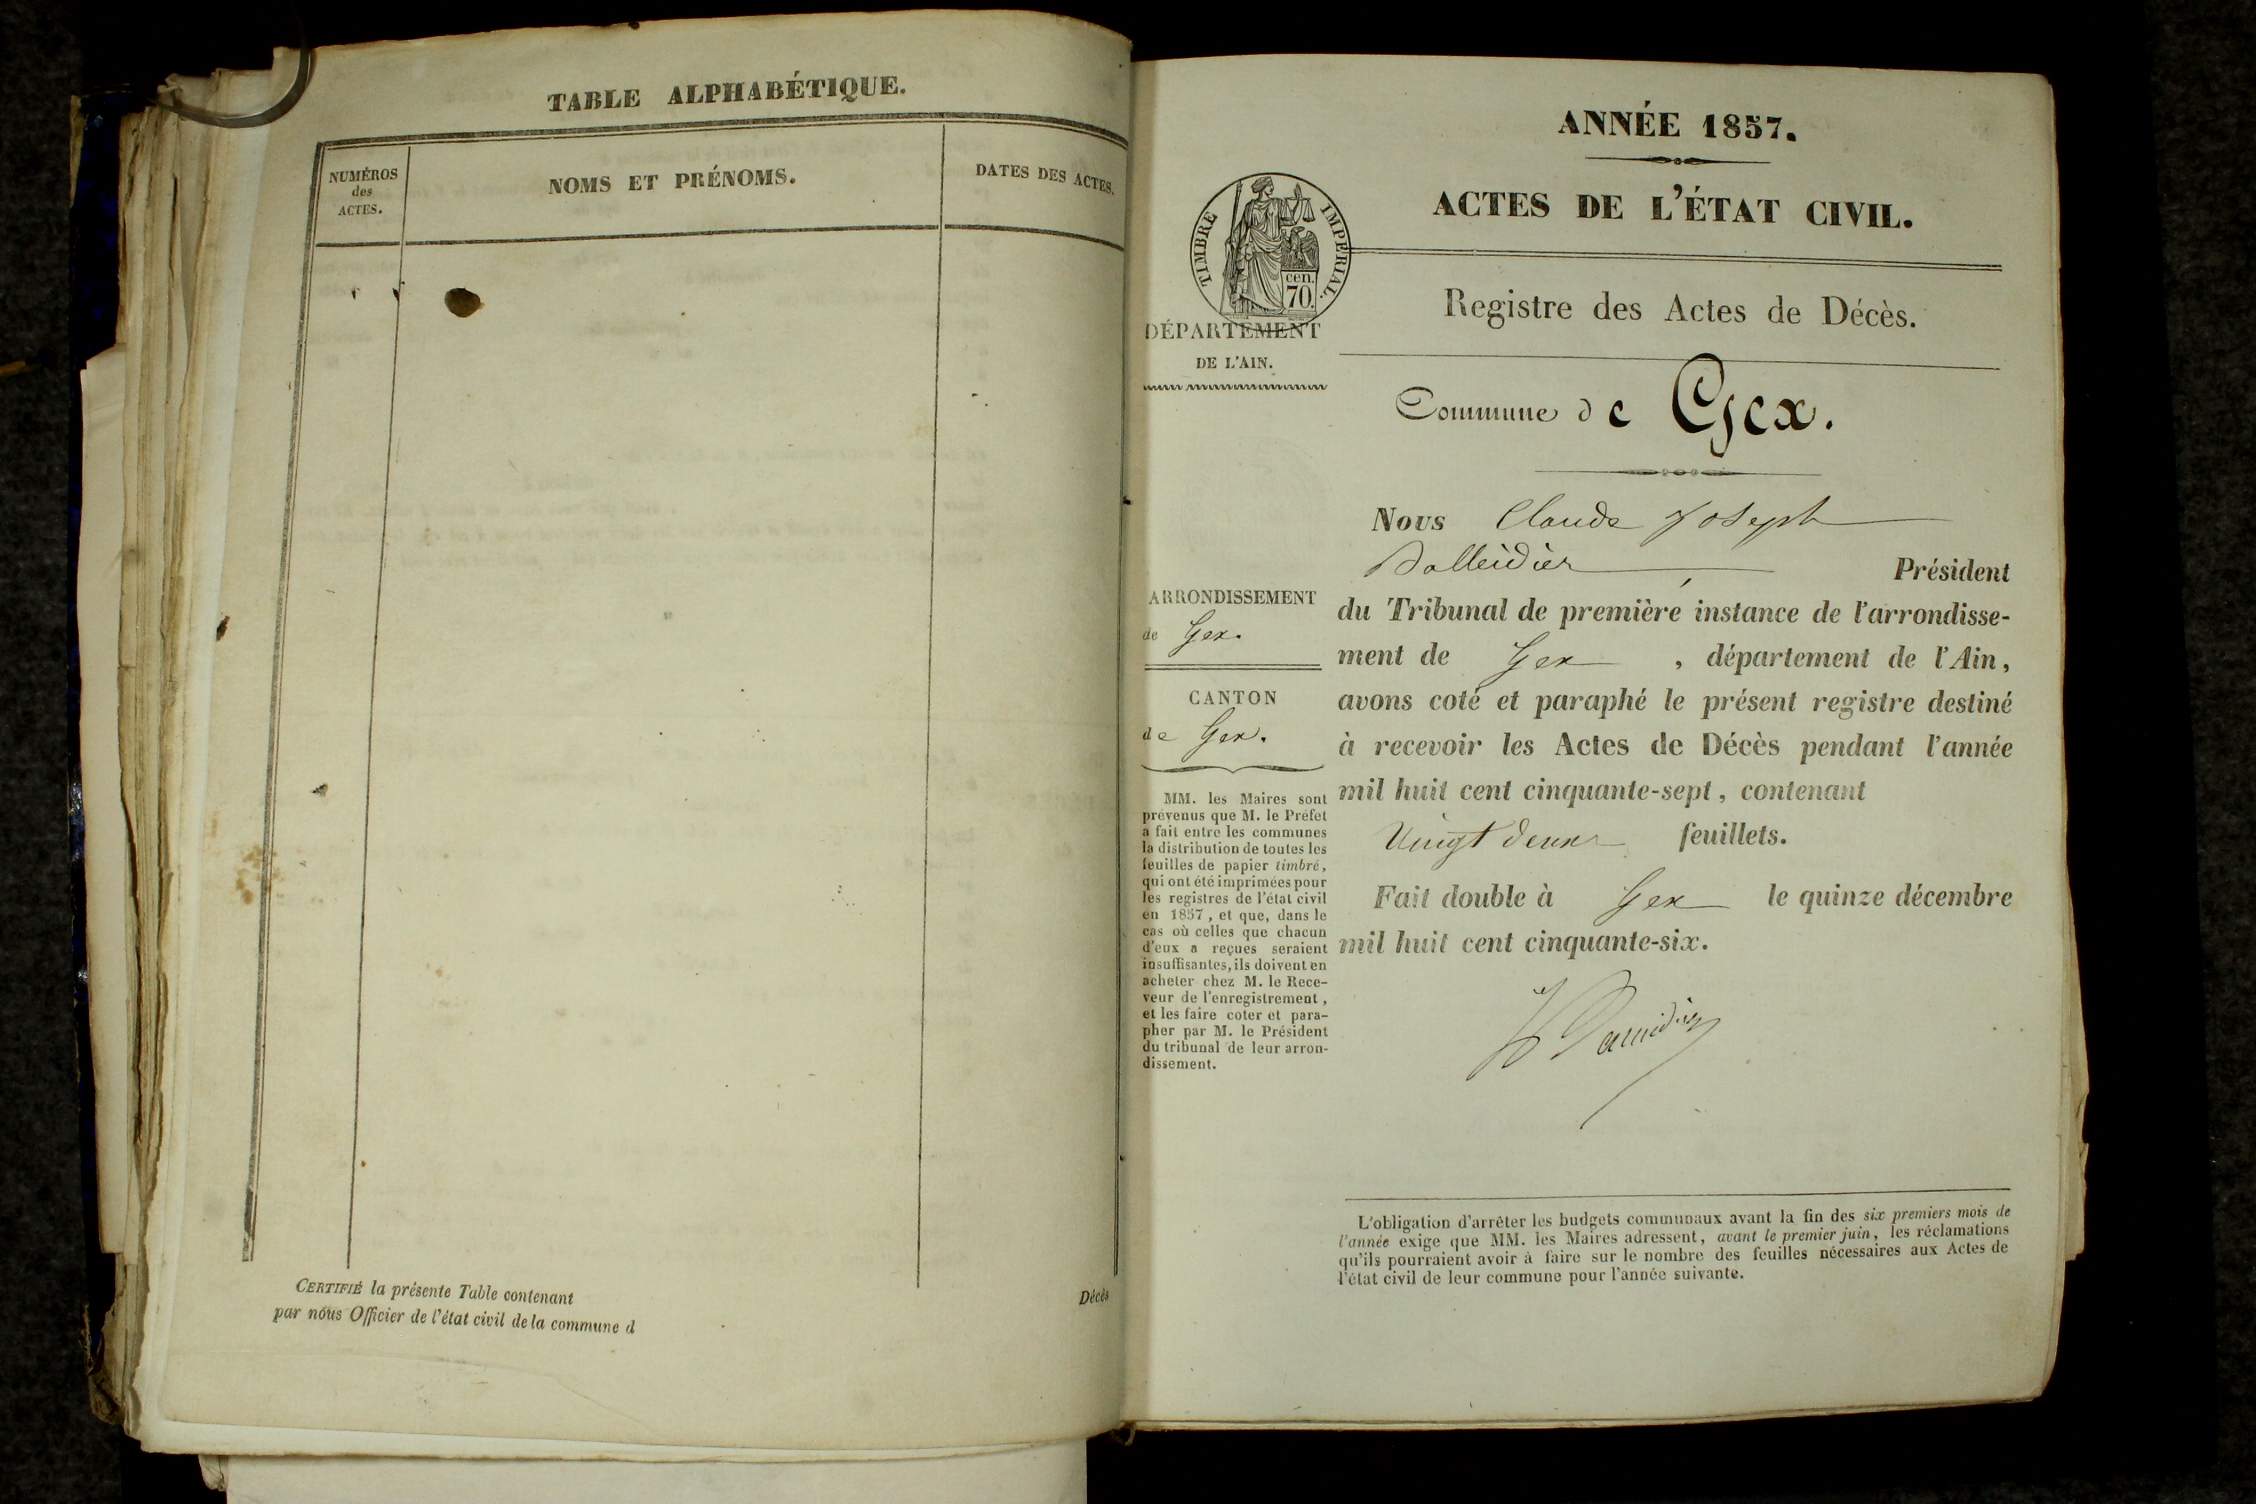 TABLE ALPHABÉTIQUE.
NUMÉROS
des
ACTES.
NOMS ET PRÉNOMS.
DATES DES ACTES.
CERTIFIÉ la présente Table contenant
Décès
par nous Officier de l'état civil de la commune d
ANNÉE 1857.
ACTES DE L'ÉTAT CIVIL.
TIMBRE IMPÉRIAL.
cen.
70.
DÉPARTEMENT
DE L'AIN.
Registre des Actes de Décès.
Commune de Gex.
ARRONDISSEMENT
de Gex.
CANTON
de Gex.
MM. les Maires sont
prévenus que M. le Préfet
a fait entre les communes
la distribution de toutes les
feuilles de papier timbré,
qui ont été imprimées pour
les registres de l'état civil
en 1857, et que, dans le
cas où celles que chacun
d'eux a reçues seraient
insuffisantes, ils doivent en
acheter chez M. le Rece-
veur de l'enregistrement,
et les faire coter et para-
pher par M. le Président
du tribunal de leur arron-
dissement.
Nous Claude Joseph
Président
du Tribunal de première instance de l'arrondisse-
ment de Gex, département de l'Ain,
avons coté et paraphé le présent registre destiné
à recevoir les Actes de Décès pendant l'année
mil huit cent cinquante-sept, contenant
Vingt deux feuillets.
Fait double à Gex le quinze décembre
mil huit cent cinquante-six.
L'obligation d'arrêter les budgets communaux avant la fin des six premiers mois de
l'année exige que MM. les Maires adressent, avant le premier juin, les réclamations
qu'ils pourraient avoir à faire sur le nombre des feuilles nécessaires aux Actes de
l'état civil de leur commune pour l'année suivante.